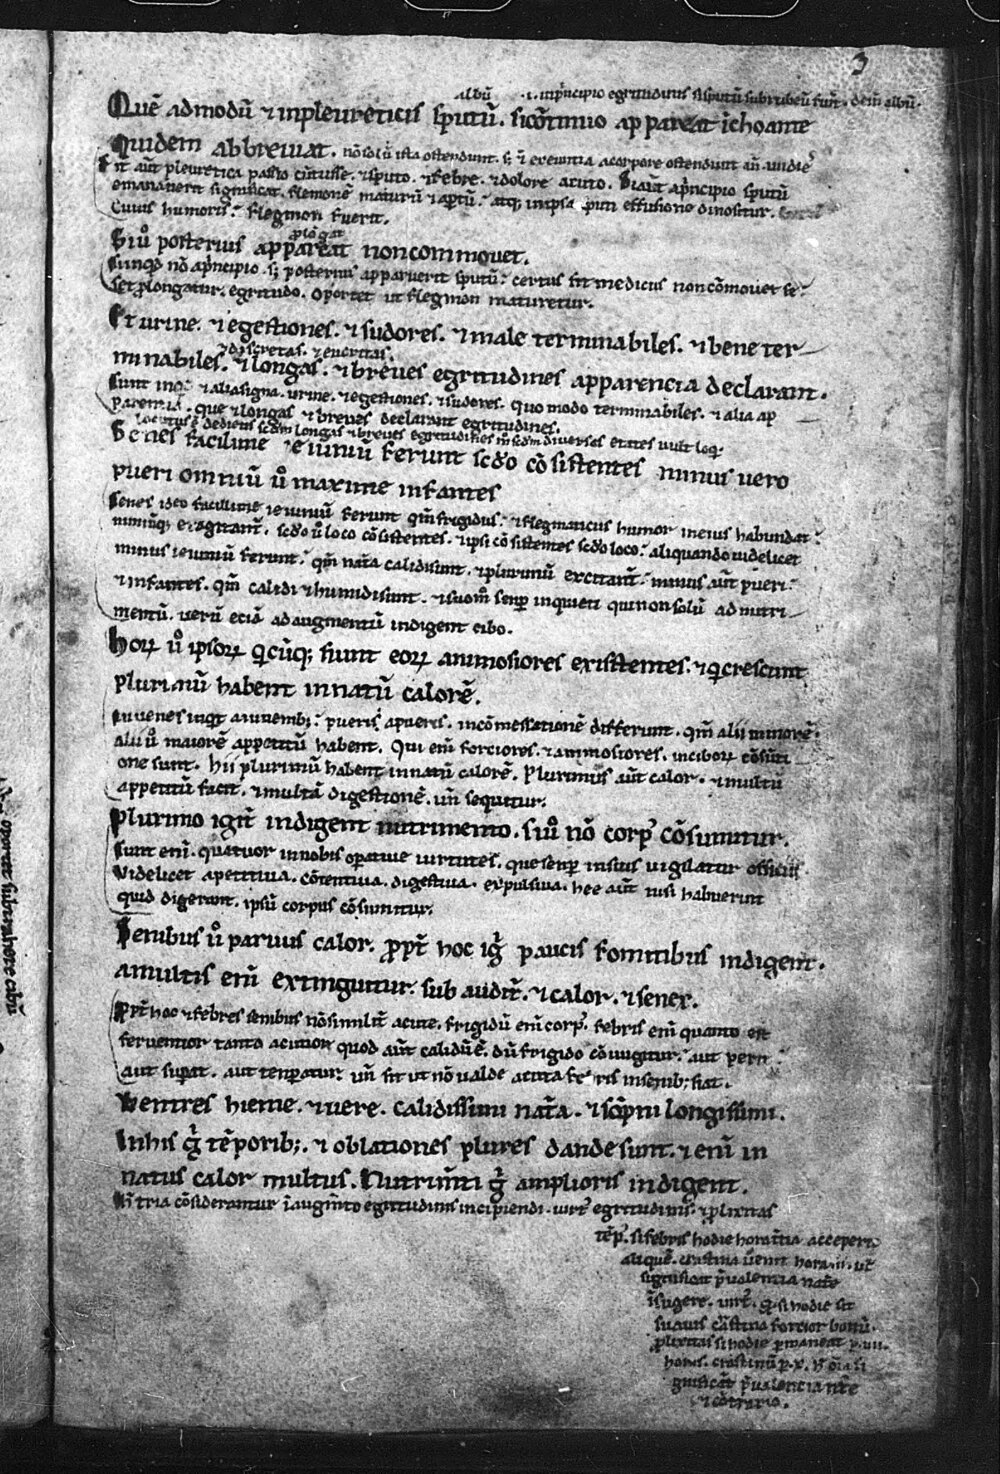 3
albū .i. inp̄ncipio egritudinis si sputū subrubeū fuīt. dein̄ albū.
Quē admodū ⁊ inpleureticis sputū. si cōtinuo appareat īchoante
quidem abbreviat. nō solū ista ostendunt. sꝫ ⁊ exeuntia acorpore ostendunt
÷ aūt pleuretica passio cūtusse. ⁊ sputo. ⁊ febre. ⁊ dolore acuto. Si aūt ap̄ncipio sputū
emanaverit significat. flemonē maturū ⁊ aptū. atqꝫ inipsa effusione dinoscitur.
cuius humoris flegmon fuerit.
plōgat
Si u̇ posterius appareat non commouet.
Si inquid nō ap̄ncipio. sꝫ posterius apparuerit sputū. certus fit medicus non cōmouet se.
set ꝓlongatur. egritudo. oportet ut flegmon maturetur.
Et urine. ⁊ egestiones. ⁊ sudores. ⁊ male terminabiles. ⁊ bene ter
⁊ discretas. ⁊ eucritas.
minabiles. ⁊ longas. ⁊ breues egritudines apparencia declarant.
Sunt inqͥ ⁊ alia signa. urine. ⁊ egestiones. ⁊ sudores. quo modo terminabiles. ⁊ alia ap
parentia. que ⁊ longas ⁊ breues declarant egritudines.
locutus ē de dietis scdm longas ⁊ breues egritudines m̄ scdm diuersas etates uult loqͥ.
Senes facilime ieiuniū ferunt scdo cōsistentes minus uero
pueri omniū u̇ maxime infantes
Senes ideo facillime ieiuniū ferunt qm̄ frigidus. ⁊ flegmaticus humor in eius habundat.
scdo u̇ loco cōsistentes. ⁊ ipsi cōsistentes scdo loco. aliquando uidelicet
minus ieiuniū ferunt. qm̄ nat̄a calidi sunt. ⁊ plurimū excitant̄. minus aūt pueri.
⁊ infantes. qm̄ calidi ⁊ humidi sunt. semꝑ inquieti qui non solū ad nutri
mentū. uerū eciā ad augmentū indigent cibo.
Hoꝝ u̇ ipsoꝝ qͥcūqꝫ fiunt eoꝝ animosiores existentes. ⁊ qͥ crescunt
plurimū habent innatū calorē.
Iuuenes inqͥt pueris apueris. in cōmessationē differunt. qm̄ alii minorē.
alii u̇ maiorē appetitū habent. Qui eni̅ forciores. ⁊ animosiores. in ciboꝝ cōsūti
one sunt. hii plurimū habent innatū calorē. Plurimus aūt calor. ⁊ multū
appetitū facit. ⁊ multā digestionē. un̄ sequitur.
Plurimo igit̄ indigent nutrimento. si u̇ nō corpꝰ cōsumitur.
Sunt eni̅. quatuor in nobis operatiue uirtutes. que semꝑ in suis uigilatur officiis
videlicet apetitiua. cōtentiua. digestiua. expulsiua. hee aūt nisi habuerint
quid digerant. ipsū corpus cōsumitur.
Senibus u̇ paruus calor. ꝓpt̄ hoc igͥ paucis fomitibus indigent.
amultis eni̅ extinguitur. sub audit̄. ⁊ calor. ⁊ senex.
ꝓpt̄ hoc ⁊ febres senibus nō similit̄ acute. frigidū eni̅ corpꝰ. febris eni̅ quanto est
feruentior tanto acutior quod aūt calidū ē. dū frigido cōiugitur. aut perit
aut superat. aut temperatur. un̄ fit ut nō ualde acuta febris in senibꝫ fiat.
Ventres hieme. ⁊ uere. calidissimi nat̄a. ⁊ sōpni longissimi.
In his gͥ tēporibꝫ. ⁊ oblationes plures dande sunt. ⁊ eni̅ in
natus calor multus. Nutrimt̄i gͥ amplioris indigent.
tria cōsiderantur ī augm̄to egritudinis incipiendi. uirt̄ egritudinis. ⁊ ꝓlixitas
tēpꝰ. si febris hodie hora tertia acceperit
aliquē. crastina uenit hora .ii. ut
significat p̄ualentia nat̄e
īsurgere. uirt̄. q̄ si hodie sit
suauis crastina forcior
ꝓlixitas si hodie ꝑmaneat ꝑ .uii.
horis. crastinū ꝑ .x. h̄ oīa si
gnificāt p̄ualencia nat̄e
⁊ ecōtrario.
oportet subtrahere cibū